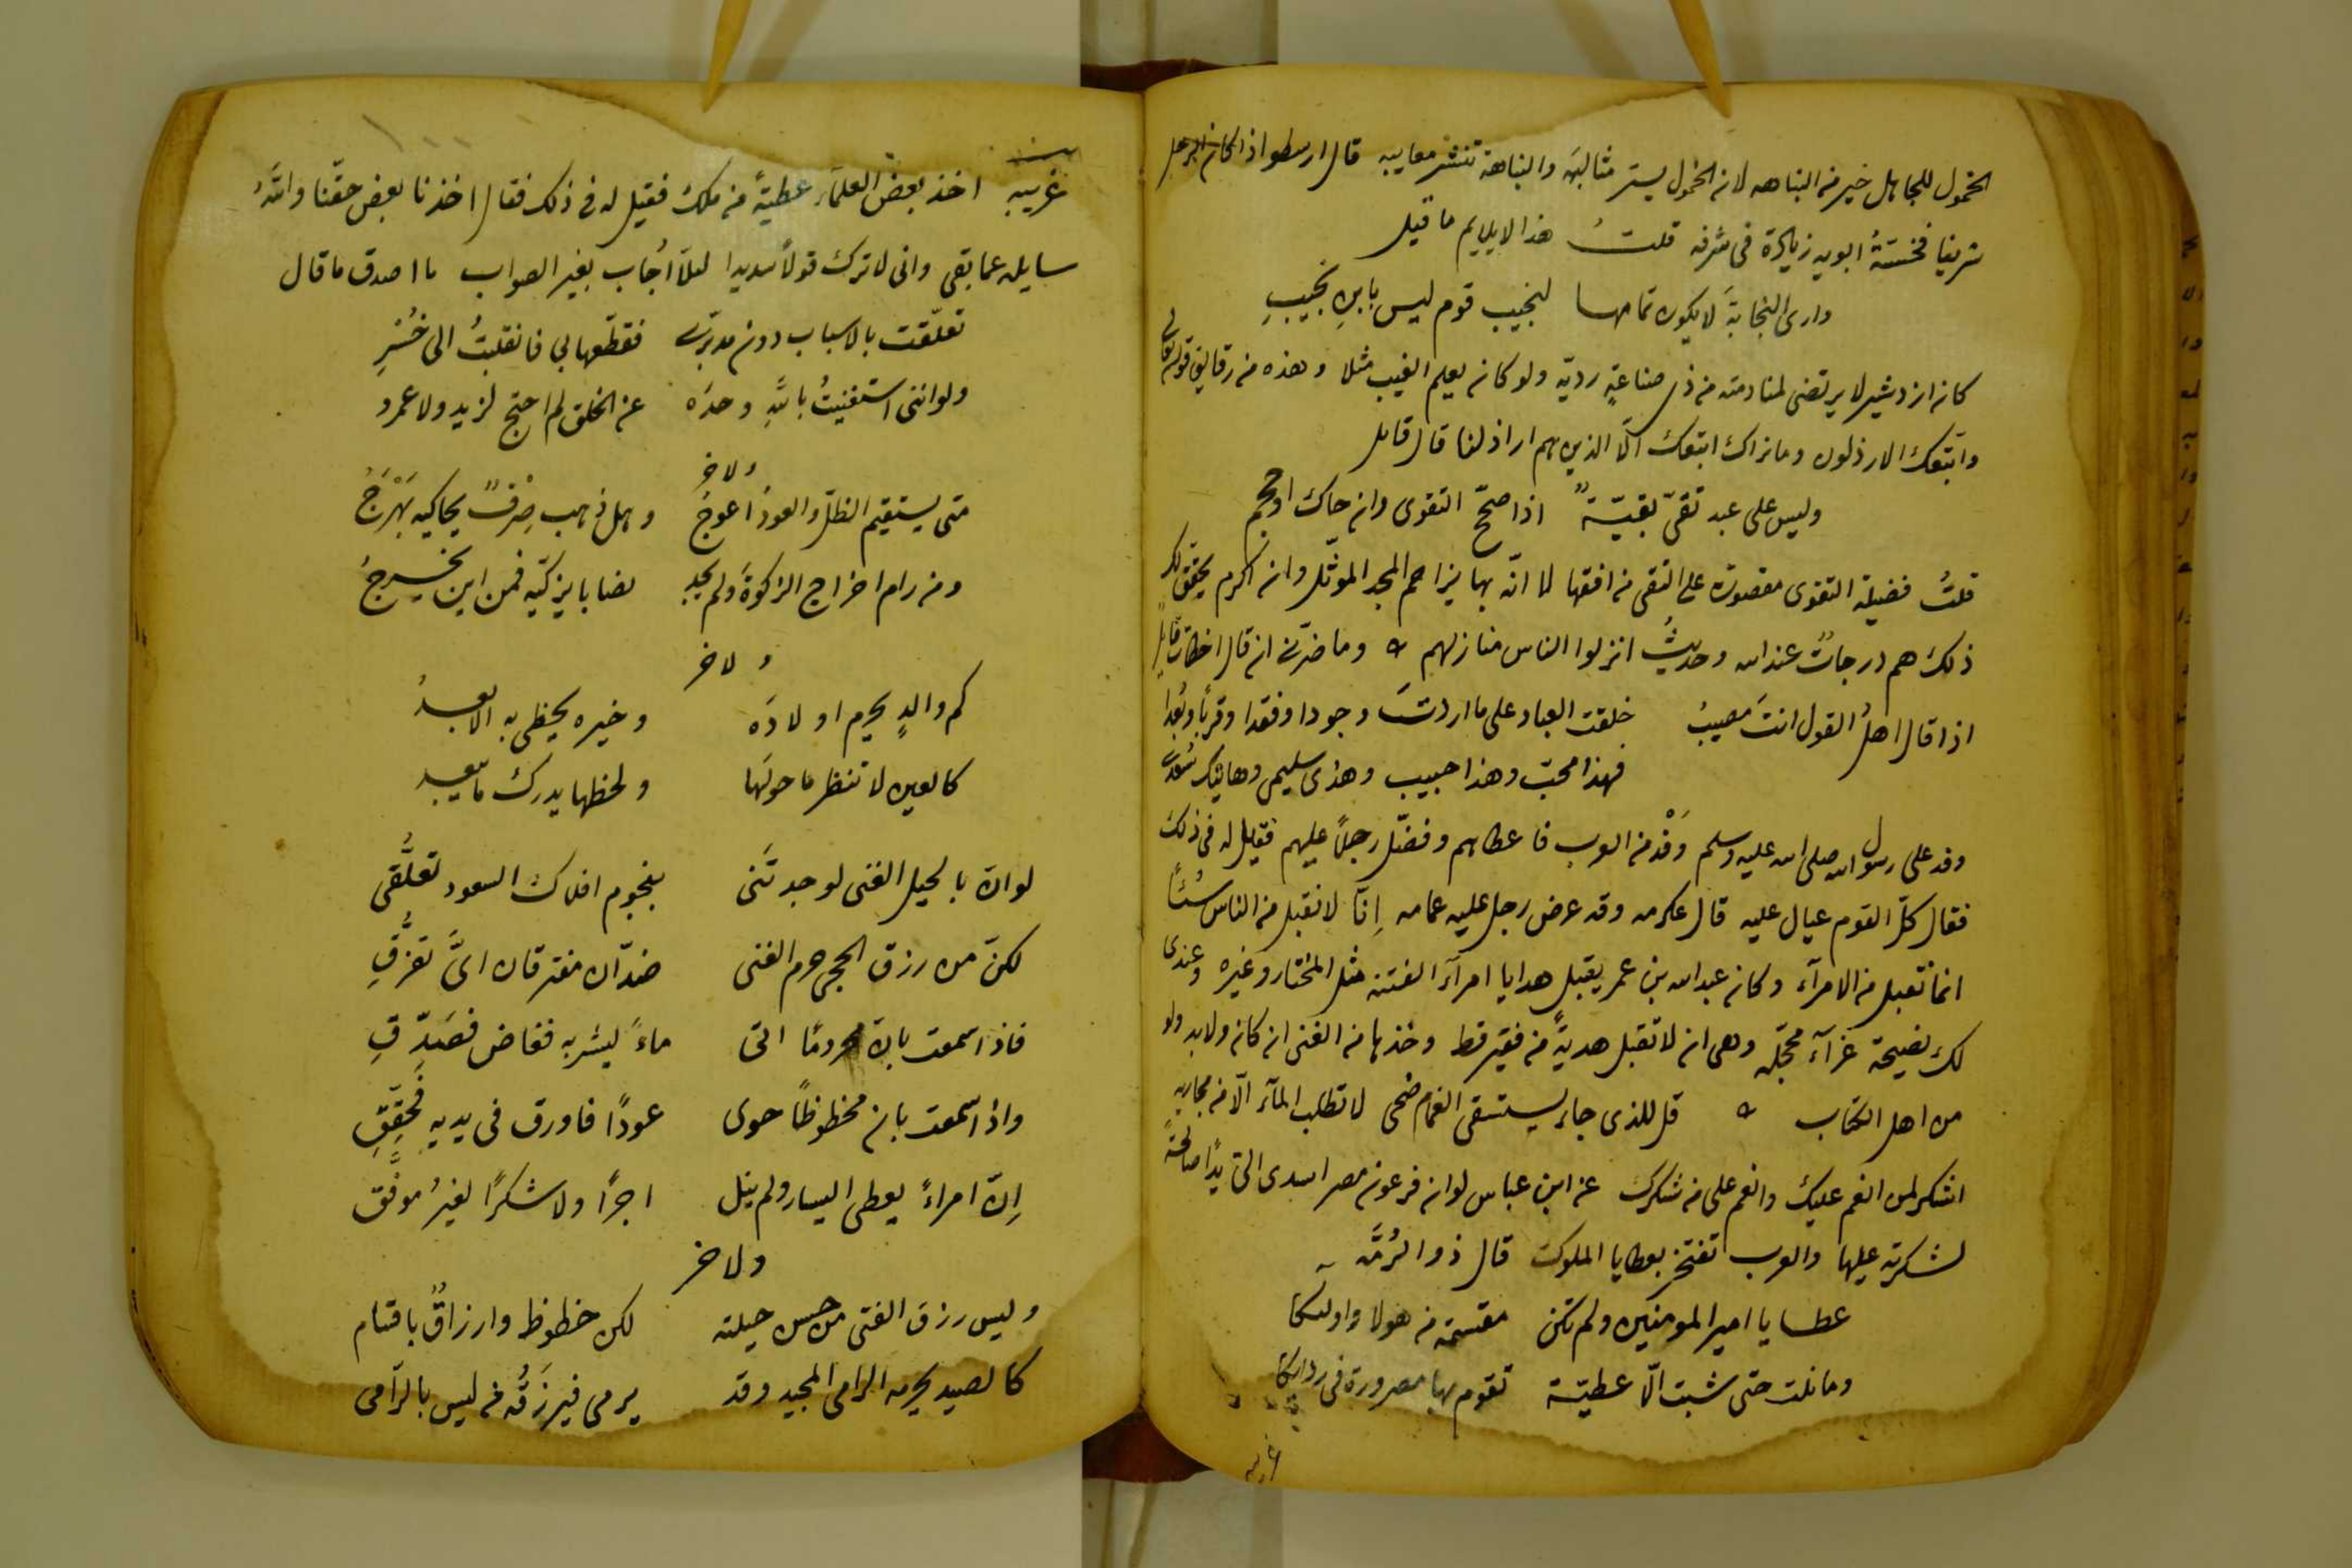 الخمول للجاهل خير من النباهه لان الخمول يستر مثالبَه والنباهة تنشر معايبه قال ارسطو اذا كان الرجل
شريفا فخسّتهُ ابويه زيادة في شرفه قلتُ هذا لا يلايم ما قيل
وارى النجابةَ لا يكون تمامها لنجيب قوم ليس بابنِ نجيبِ
كان اردشير لا يرتضى لمنادمته من ذى صناعةٍ رديّه ولو كان يعلم الغيب مثلا وهذه من رقايق قوله تعالى
واتبعك الارذلون وما نراك اتبعك الّا الذين هم اراذلنا قال قايل
وليس على عبد تقىّ نقيّةٌ اذا صحّح التقوى وان حاك او حجم
قلتُ فضيلة التقوى مقصورة على التقى من افقها لا انّه بها يزاحم المجد الموثّل وان اكرم يحقق لك
ذلك هم درجاتٌ عند الله وحديثُ انزلوا الناس منازلهم وما ضرّنى ان قال اخطات قايلٌ
اذا قال اهلُ القول انتَ مصيبُ خلقت العباد على ما اردتَ وجودا وفقدا وقربًا وبُعدا
فهذا محبّ وهذا حبيب وهذى سليمى وهاتيك سُعدى
وفد على رسول الله صلى الله عليه وسلم وَفْد من العرب فاعطاهم وفضّل رجلاً عليهم فقيل له فى ذلك
فقال كلّ القوم عيال عليه قال عكرمه وقد عرض رجل عليه عمامه اِنّا لا نقبل من الناس شيئًا
انما نقبل من الامرآء وكان عبد الله بن عمر يقبل هدايا امرآء الفتنه مثل المختار وغيره وعندى
لك نصيحة غرآء محجّله وهى ان لا تقبل هديةً من فقير قط وخذها من الغنى ان كان ولا بد ولو
من اهل الكتاب قل للذى جاء يستسقى الغمام ضحى لا تطلب المآء الّا من مجاريه
اشكر لمن انعم عليك وانعم على من شكرك عن ابن عباس لو ان فرعون مصر اسدى الىّ يدًا صالحةً
لشكرته عليها والعرب تفتخر بعطايا الملوك قال ذو الرُمَّه
عطايا امير المومنين ولم تكن مقسّمة من هولا واولىكا
وما نلت حتى شبت الّا عطيّة تقوم بها مصرورة فى ردائكا
غريبه
غريبه اخذ بعض العلمآء عطيّةً من ملك فقيل له فى ذلك فقال اخذنا بعض حقّنا واللهُ
سايله عما بقى وانى لا ترك قولاً سديدا لئلّا اُجاب بغير الصواب ما اصدق ما قال
تعلّقت بالاسباب دون مدبّرى فقطّعها بي فانقلبتُ الى خُسْرِ
ولو اننى استغنيتُ باللهِ وحدَه عن الخلق لم احتج لزيد ولا عمرو
ولاخر
متى يستقيم الظلّ والعودُ اعوجُ وهل ذهب صِرْفٌ يحاكيه بَهْرَجُ
ومن رام اخراج الزكوةَ ولم يجد نصابا يزكّيه فمن اين يخرجُ
ولاخر
كم والدٍ يحرم اولادَه وخيره يحظى به الابعدُ
كالعين لا تنظر ما حولَها ولحظها يدرك ما يبعد
لو انّ بالحيل الغنى لوجدتَنى بنجوم افلاك السعود تعلُّقى
لكنّ من رزق الحجى حرم الغنى ضدّان مفترقان اىَّ تفرُّقِ
فاذا سمعت بانّ محرومًا اتى ماءً ليشربه فغاض فصَدِّقِ
واذا سمعت بان محظوظاً حوى عودًا فاورق فى يديهِ فَحقِّقِ
اِنّ امراءً يعطى اليسار ولم ينل اجرًا ولا شكرًا لغيرُ موفَّق
ولاخر
وليس رزق الفتى من حسن حيلته لكن حظوظ وارزاقٌ باقسام
كالصيد يحرمه الرامى المجيد وقد يرمى فيرزَقُه من ليس بالرّامى